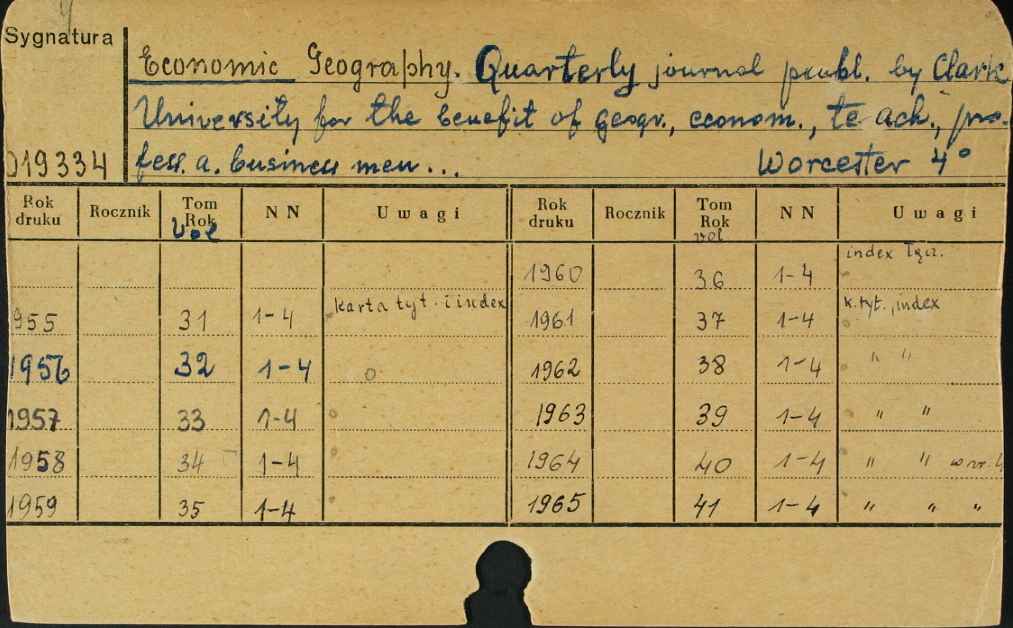 Sygnatura
Economic Geography. Quarterly journal publ. by Clark
University for the benefit of geogr., econom., teach., pro-
019334 fess. a. business men... Worcester 4°
Rok druku Rocznik Tom Rok vol NN Uwagi Rok druku Rocznik Tom Rok vol NN Uwagi
1960 36 1-4 index łącz.
1955 31 1-4 karta tyt. i index 1961 37 1-4 k. tyt., index
1956 32 1-4 o 1962 38 1-4 " "
1957 33 1-4 1963 39 1-4 " "
1958 34 1-4 1964 40 1-4 " " w nr. 4
1959 35 1-4 1965 41 1-4 " " "